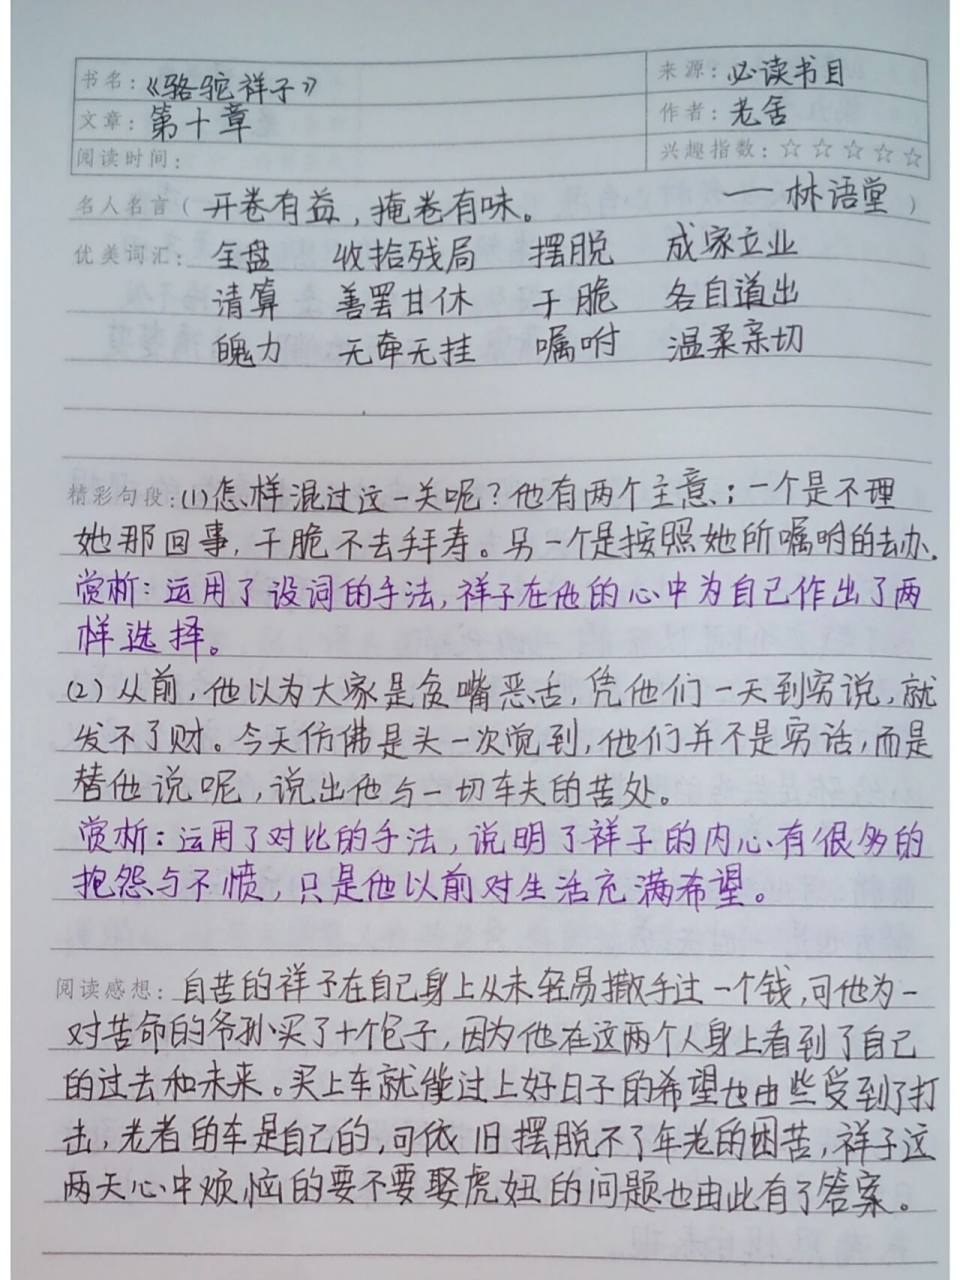 书名：《骆驼祥子》 来源：必读书目
文章：第十章 作者：老舍
阅读时间： 兴趣指数：☆☆☆☆☆
名人名言（开卷有益，掩卷有味。 ——林语堂）
优美词汇：全盘 收拾残局 摆脱 成家立业
清算 善罢甘休 干脆 各自道出
魄力 无牵无挂 嘱咐 温柔亲切
精彩句段：(1)怎样混过这一关呢？他有两个主意：一个是不理
她那回事，干脆不去拜寿。另一个是按照她所嘱咐的去办。
赏析：运用了设词的手法，祥子在他的心中为自己作出了两
样选择。
(2)从前，他以为大家是贪嘴恶舌，凭他们一天到穷说，就
发不了财。今天仿佛是头一次觉到，他们并不是穷话，而是
替他说呢，说出他与一切车夫的苦处。
赏析：运用了对比的手法，说明了祥子的内心有很多的
抱怨与不愤，只是他以前对生活充满希望。
阅读感想：自苦的祥子在自己身上从未轻易撒手过一个钱，可他为一
对苦命的爷孙买了十个包子，因为他在这两个人身上看到了自己
的过去和未来。买上车就能过上好日子的希望也由些受到了打
击，老者的车是自己的，可依旧摆脱不了年老的困苦，祥子这
两天心中烦恼的要不要娶虎妞的问题也由此有了答案。